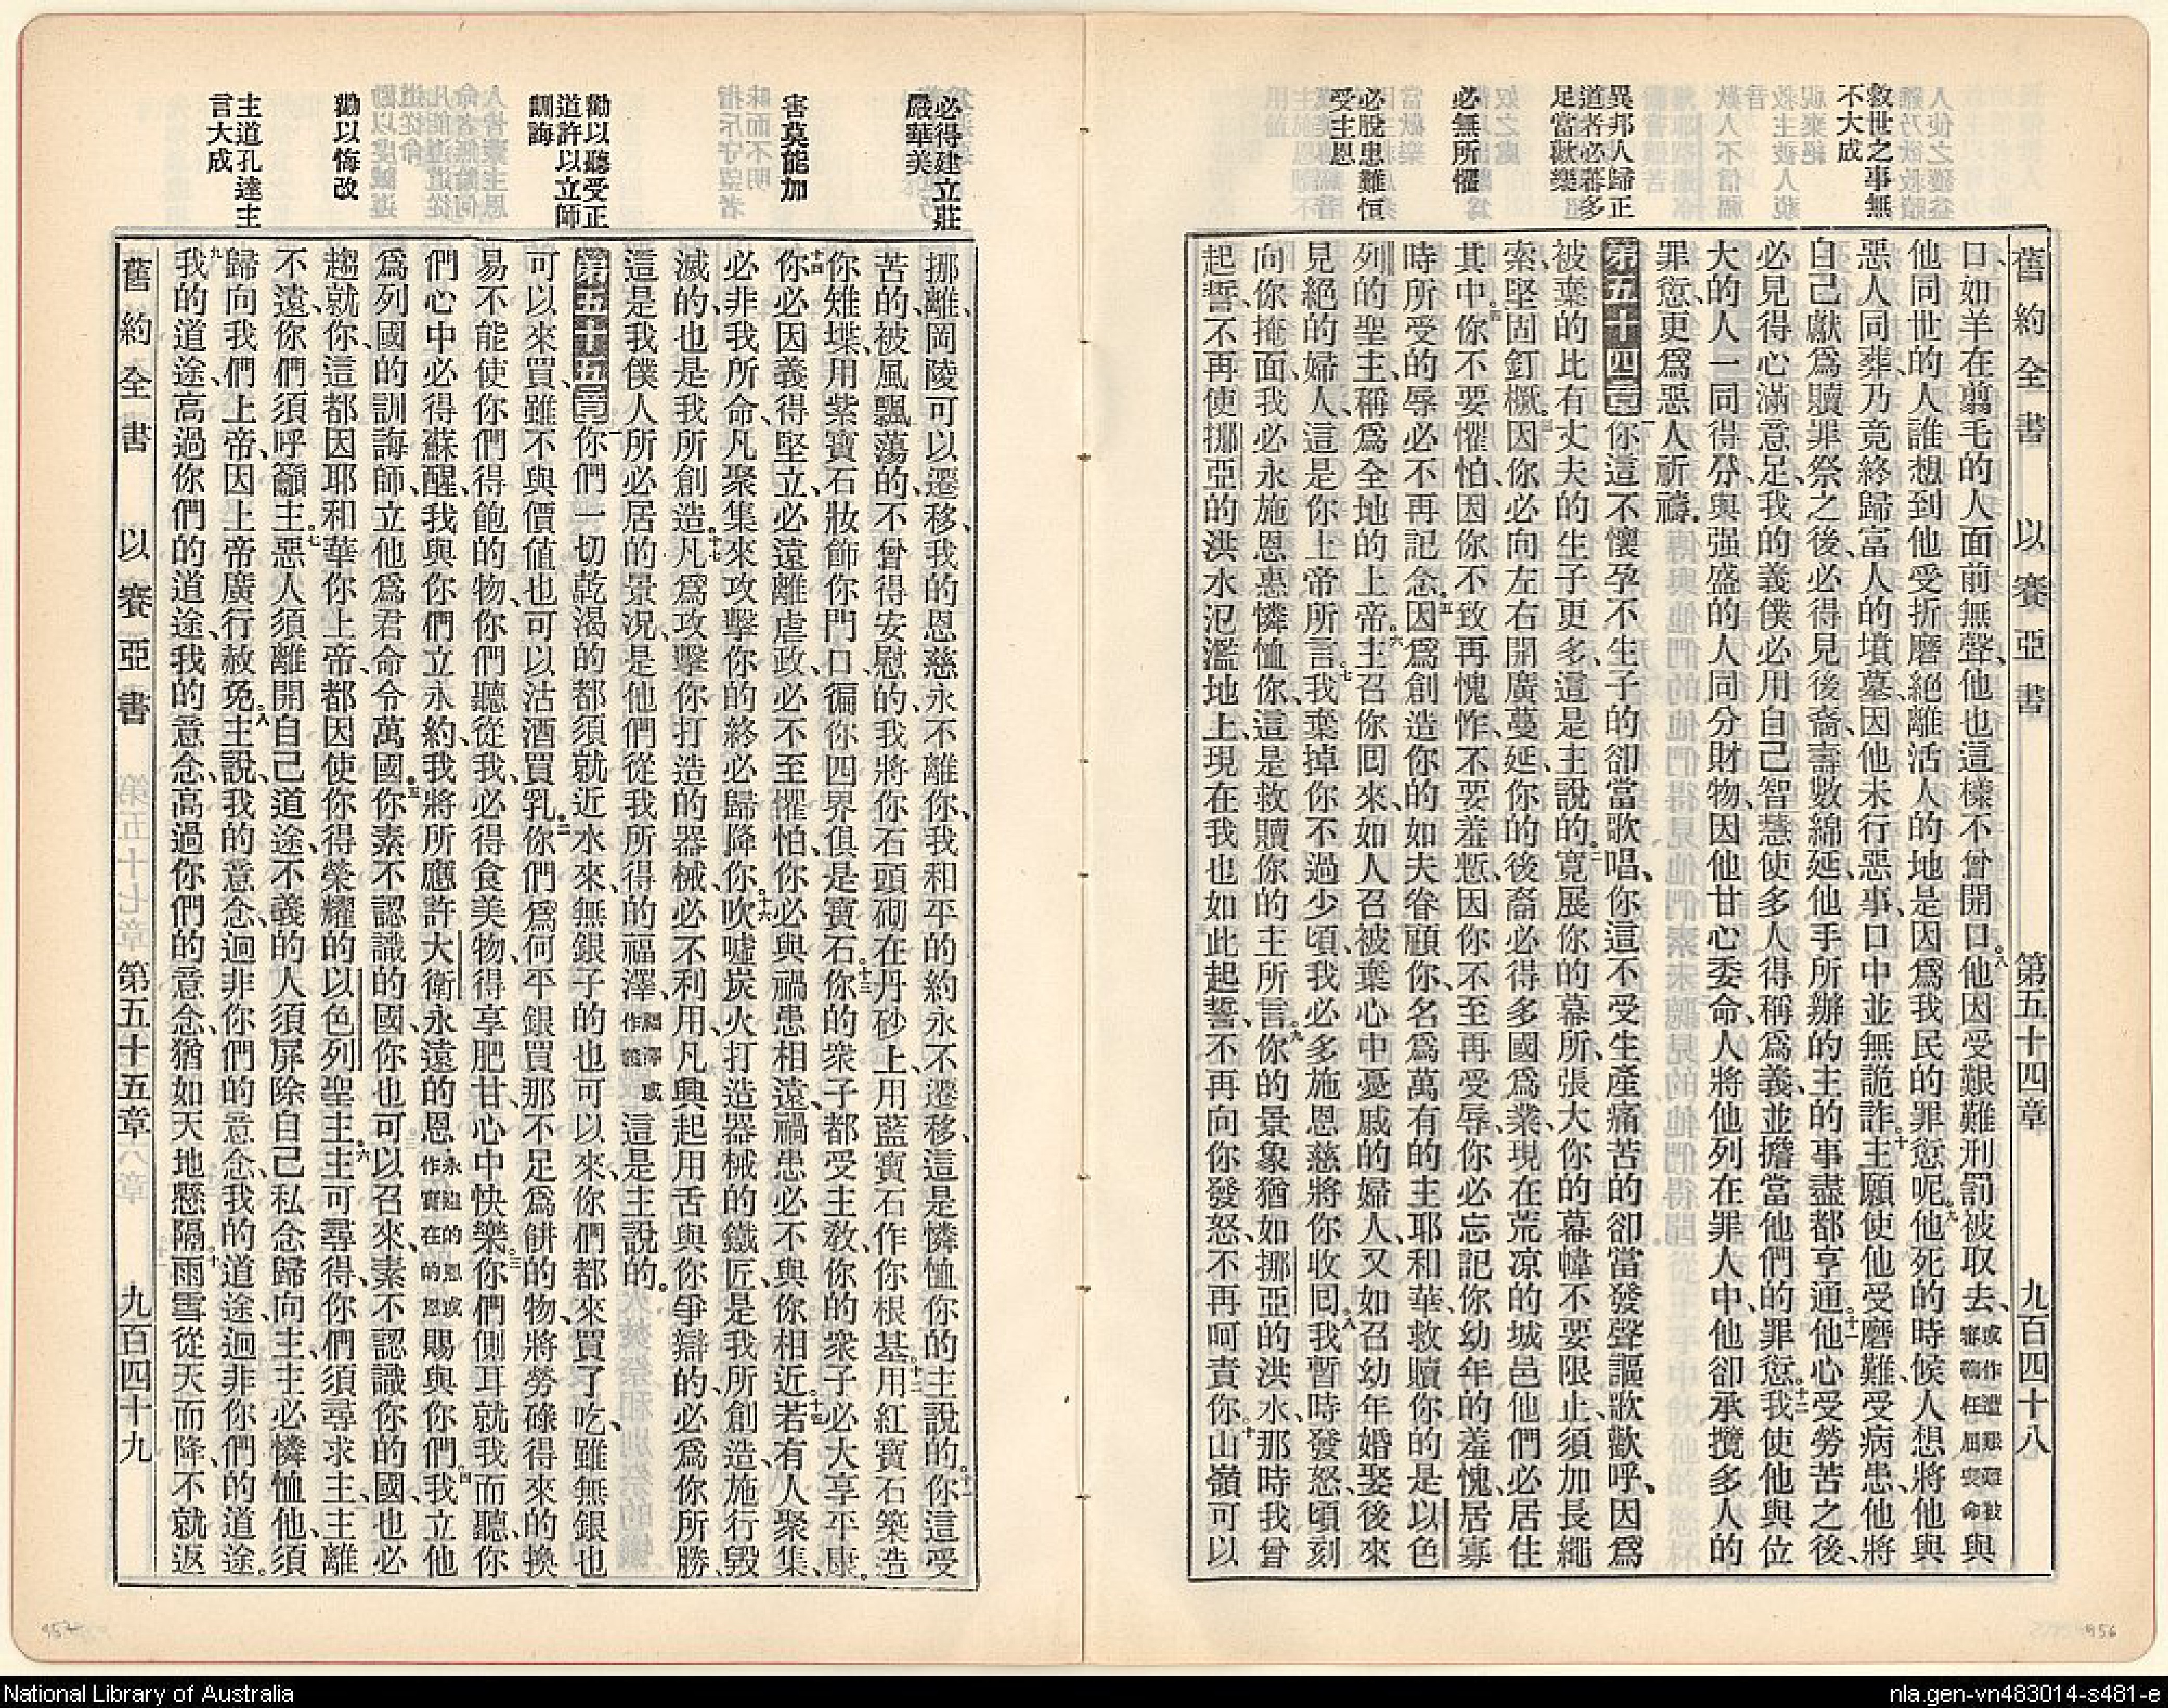 舊約全書 以賽亞書 第五十四章 九百四十八
救世之事無
不大成
異邦人歸正
道者必蕃多
足當歡樂
必無所懼
必脫患難恒
受主恩
口、如羊在翦毛的人面前無聲、他也這樣不曾開口。八他因受艱難刑罰被取去、或作遭艱難被審鞫任屈喪命與
他同世的人誰想到他受折磨絕離活人的地是因爲我民的罪愆呢。九他死的時候人想將他與
惡人同葬、乃竟終歸富人的墳墓、因他未行惡事、口中並無詭詐。十主願使他受磨難、受病患、他將
自己獻爲贖罪祭之後、必得見後裔、壽數綿延、他手所辦的主的事盡都亨通。十一他心受勞苦之後、
必見得心滿意足、我的義僕必用自己智慧使多人得稱爲義、並擔當他們的罪愆。十二我使他與位
大的人一同得分、與强盛的人同分財物、因他甘心委命、人將他列在罪人中、他卻承攬多人的
罪愆、更爲惡人祈禱。
第五十四章 一你這不懷孕不生子的卻當歌唱、你這不受生產痛苦的卻當發聲謳歌歡呼、因爲
被棄的比有丈夫的生子更多、這是主說的。二寬展你的幕所、張大你的幕幃不要限止、須加長繩
索、堅固釘橛。三因你必向左右開廣蔓延、你的後裔必得多國爲業、現在荒凉的城邑他們必居住
其中。四你不要懼怕、因你不致再愧怍、不要羞慙、因你不至再受辱、你必忘記你幼年的羞愧、居寡
時所受的辱必不再記念。五因爲創造你的如夫眷顧你、名爲萬有的主耶和華、救贖你的是以色
列的聖主、稱爲全地的上帝。六主召你囘來、如人召被棄心中憂戚的婦人、又如召幼年婚娶後來
見絕的婦人、這是你上帝所言。七我棄掉你不過少頃、我必多施恩慈將你收囘。八我暫時發怒、頃刻
向你掩面、我必永施恩惠憐恤你、這是救贖你的主所言。九你的景象猶如挪亞的洪水、那時我曾
起誓、不再使挪亞的洪水氾濫地上、現在我也如此起誓、不再向你發怒、不再呵責你。十山嶺可以
必得建立莊
嚴華美
害莫能加
勸以聽受正
道許以立師
訓誨
勸以悔改
主道孔達主
言大成
挪離、岡陵可以遷移、我的恩慈永不離你、我和平的約永不遷移、這是憐恤你的主說的。十一你這受
苦的、被風飄蕩的、不曾得安慰的、我將你石頭砌在丹砂上、用藍寶石作你根基。十二用紅寶石築造
你雉堞、用紫寶石妝飾你門口、徧你四界俱是寶石。十三你的衆子都受主教、你的衆子必大享平康。
十四你必因義得堅立、必遠離虐政、必不至懼怕、你必與禍患相遠、禍患必不與你相近。十五若有人聚集、
必非我所命、凡聚集來攻擊你的終必歸降你。十六吹噓炭火打造器械的鐵匠、是我所創造、施行毀
滅的、也是我所創造。十七凡爲攻擊你打造的器械、必不利用、凡興起用舌與你爭辯的、必爲你所勝、
這是我僕人所必居的景況、是他們從我所得的福澤、福澤或作義這是主說的。
第五十五章 一你們一切乾渴的都須就近水來、無銀子的也可以來、你們都來買了吃、雖無銀也
可以來買、雖不與價值也可以沽酒買乳。二你們爲何平銀買那不足爲餅的物、將勞碌得來的換
易不能使你們得飽的物、你們聽從我、必得食美物、得享肥甘、心中快樂。三你們側耳就我而聽、你
們心中必得蘇醒、我與你們立永約、我將所應許大衛永遠的恩、永遠的恩或作實在的恩賜與你們。四我立他
爲列國的訓誨師、立他爲君命令萬國。五你素不認識的國、你也可以召來、素不認識你的國、也必
趨就你、這都因耶和華你上帝、都因使你得榮耀的以色列聖主。六主可尋得、你們須尋求主、主離
不遠、你們須呼籲主。七惡人須離開自己道途、不義的人須屏除自己私念歸向主、主必憐恤他、須
歸向我們上帝、因上帝廣行赦免。八主說、我的意念、迥非你們的意念、我的道途、迥非你們的道途。
九我的道途高過你們的道途、我的意念、高過你們的意念、猶如天地懸隔。十雨雪從天而降、不就返
舊約全書 以賽亞書 第五十五章 九百四十九
957
956
National Library of Australia
nla.gen-vn483014-s481-e